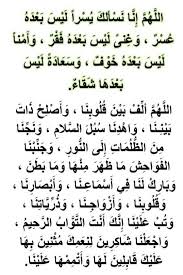 اللَّهُمَّ إِنَّا نَسْأَلُكَ يُسْراً لَيْسَ بَعْدَهُ
عُسْرٌ ، وَغِنًى لَيْسَ بَعْدَهُ فَقْرٌ ، وَأَمْناً
لَيْسَ بَعْدَهُ خَوْفٌ ، وَسَعَادَةً لَيْسَ
بَعْدَهَا شَقَاءٌ.
اللَّهُمَّ أَلِّفْ بَيْنَ قُلُوبِنَا ، وَأَصْلِحْ ذَاتَ
بَيْنِنَا ، وَاهْدِنَا سُبُلَ السَّلَامِ ، وَنَجِّنَا
مِنَ الظُّلُمَاتِ إِلَى النُّورِ ، وَجَنِّبْنَا
الفَوَاحِشَ مَا ظَهَرَ مِنْهَا وَمَا بَطَنَ ،
وَبَارِكْ لَنَا فِي أَسْمَاعِنَا ، وَأَبْصَارِنَا
وَقُلُوبِنَا ، وَأَزْوَاجِنَا ، وَذُرِّيَّاتِنَا ،
وَتُبْ عَلَيْنَا إِنَّكَ أَنْتَ التَّوَّابُ الرَّحِيمُ ،
وَاجْعَلْنَا شَاكِرِينَ لِنِعَمِكَ مُثْنِينَ بِهَا
عَلَيْكَ قَابِلِينَ لَهَا وَأَتْمِمْهَا عَلَيْنَا.